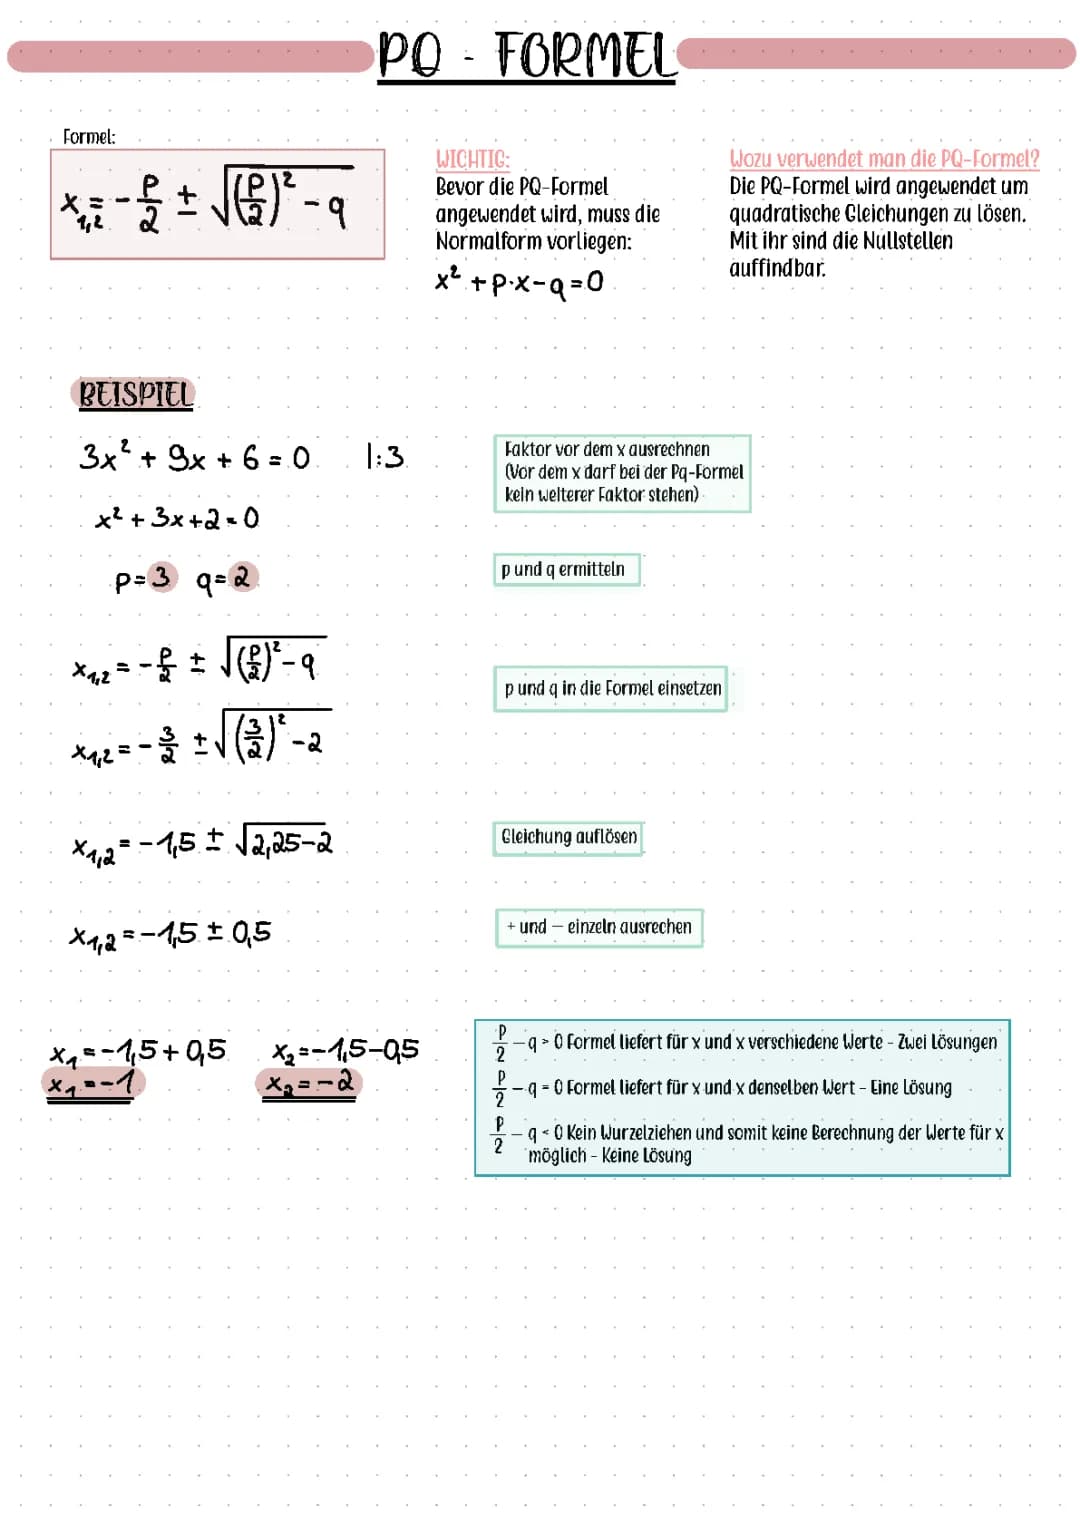 PQ - FORMEL
Formel:
x₁,₂ = - p/2 ± √((p/2)² - q)
WICHTIG:
Bevor die PQ-Formel
angewendet wird, muss die
Normalform vorliegen:
x² + p·x - q = 0
Wozu verwendet man die PQ-Formel?
Die PQ-Formel wird angewendet um
quadratische Gleichungen zu lösen.
Mit ihr sind die Nullstellen
auffindbar.
BEISPIEL
3x² + 9x + 6 = 0 |:3
Faktor vor dem x ausrechnen
(Vor dem x darf bei der Pq-Formel
kein weiterer Faktor stehen)
x² + 3x + 2 = 0
p = 3 q = 2
p und q ermitteln
x₁,₂ = - p/2 ± √((p/2)² - q)
p und q in die Formel einsetzen
x₁,₂ = - 3/2 ± √((3/2)² - 2)
x₁,₂ = -1,5 ± √2,25-2
Gleichung auflösen
x₁,₂ = -1,5 ± 0,5
+ und – einzeln ausrechen
x₁ = -1,5 + 0,5 x₂ = -1,5 - 0,5
x₁ = -1 x₂ = -2
p/2 – q > 0 Formel liefert für x und x verschiedene Werte - Zwei Lösungen
p/2 – q = 0 Formel liefert für x und x denselben Wert - Eine Lösung
p/2 – q < 0 Kein Wurzelziehen und somit keine Berechnung der Werte für x
möglich - Keine Lösung